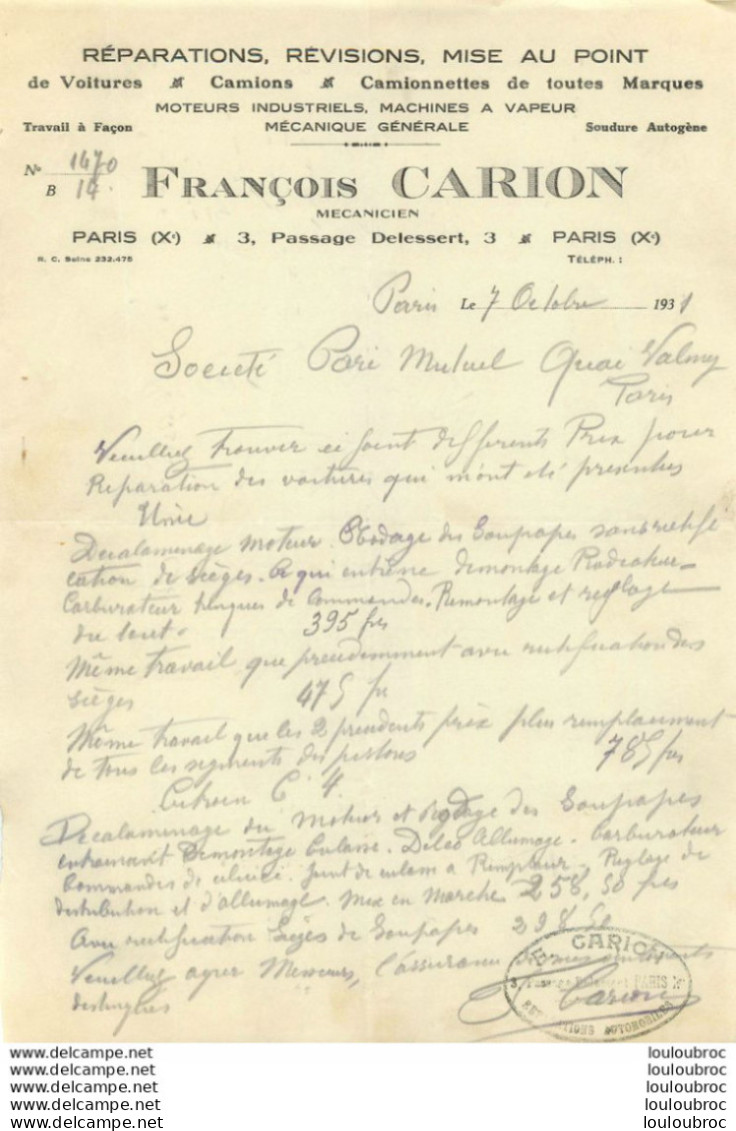 RÉPARATIONS, RÉVISIONS, MISE AU POINT
de Voitures Camions Camionnettes de toutes Marques
MOTEURS INDUSTRIELS, MACHINES A VAPEUR
Travail à Façon MÉCANIQUE GÉNÉRALE Soudure Autogène
No 1470
B 14.
FRANÇOIS CARION
MECANICIEN
PARIS (Xe) 3, Passage Delessert, 3 PARIS (Xe)
R. C. Seine 232.475 TÉLÉPH. :
Paris Le 7 Octobre 1931
Societé Pari Mutuel Quai Valmy
Paris
Veuillez trouver ci joint differents Prix pour
Reparation des voitures qui m'ont eté presentes
Unic
Decalaminage moteur. Rodage des Soupapes sans rectifi
cation de sièges. Ce qui entrêne demontage Radiateur
Carburateur tringues de Commandes. Remontage et reglage
du tout. 395 frs
Même travail que precedemment avec rectification des
sièges 475 fr
Même travail que les 2 precedents prix plus remplacement
de tous les segments des pistons 785 frs
Citroen C 4
Decalaminage du moteur et Rodage des Soupapes
entrainant Demontage Culasse. Delco Allumage. Carburateur
Commandes de Joint de culasse a Remplacer. Reglage de
distribution et d'allumage. Mise en Marche 258,50 frs
Avec rectification Sièges de Soupapes 298 50
Veuillez agreer Messieurs, l'assurance de mes sentiments
destingués
CARION
3, Passage Delessert PARIS Xe
REPARATIONS AUTOMOBILES
Carion
www.delcampe.net louloubroc
www.delcampe.net louloubroc
www.delcampe.net louloubroc
www.delcampe.net louloubroc
www.delcampe.net louloubroc